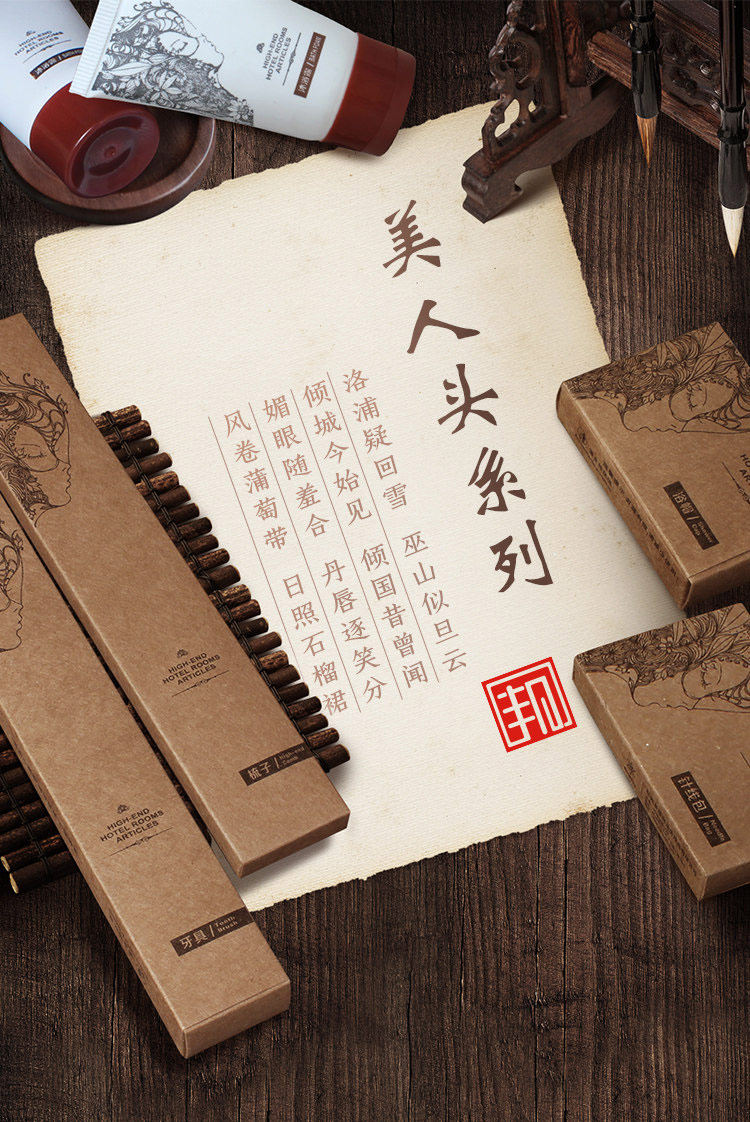 HIGH-END
HOTEL ROOMS
ARTICLES
沐浴露 / BATH FOAM
HIGH-END
HOTEL ROOMS
ARTICLES
美人头系列
洛浦疑回雪 巫山似旦云
倾城今始见 倾国昔曾闻
媚眼随羞合 丹唇逐笑分
风卷蒲萄带 日照石榴裙
邦
浴帽 / Shower Cap
HIGH-END
HOTEL ROOMS
ARTICLES
梳子 / High-end Comb
HIGH-END
HOTEL ROOMS
ARTICLES
牙具 / Tooth Brush
针线包